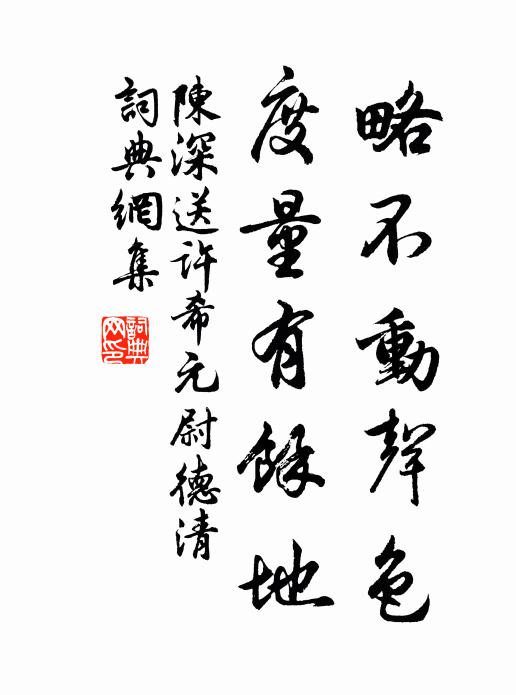 略不動聲色
度量有餘地
陳深送許希元尉德清
詞典網集
詞典網印